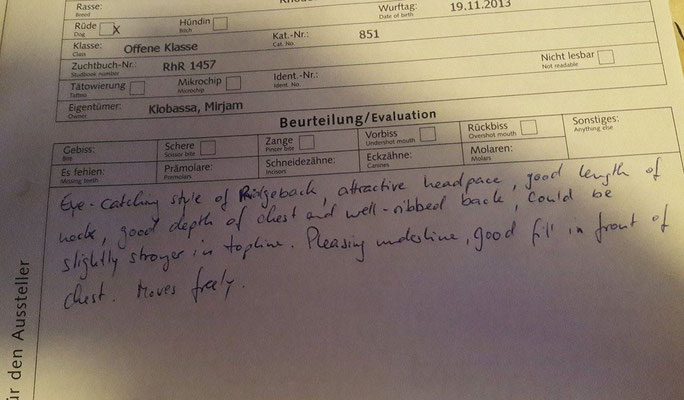 Rasse:
Breed
Wurftag: 19.11.2013
Date of birth
Rüde x Hündin
Dog Bitch
Klasse: Offene Klasse Kat.-Nr.: 851
Class Cat. No.
Zuchtbuch-Nr.: RhR 1457
Studbook number
Tätowierung Mikrochip Ident.-Nr.: Nicht lesbar
Tattoo Microchip Ident. No. Not readable
Eigentümer: Klobassa, Mirjam
Owner
Beurteilung/Evaluation
Gebiss: Schere Zange Vorbiss Rückbiss Sonstiges:
Bite Scissor bite Pincer bite Undershot mouth Overshot mouth Anything else
Es fehlen: Prämolare: Schneidezähne: Eckzähne: Molaren:
Missing teeth Premolars Incisors Canines Molars
Eye-catching style of Ridgeback, attractive headpiece, good length of
neck, good depth of chest and well-ribbed back, could be
slightly stronger in topline. Pleasing underline, good fill in front of
chest. Moves freely.
für den Aussteller